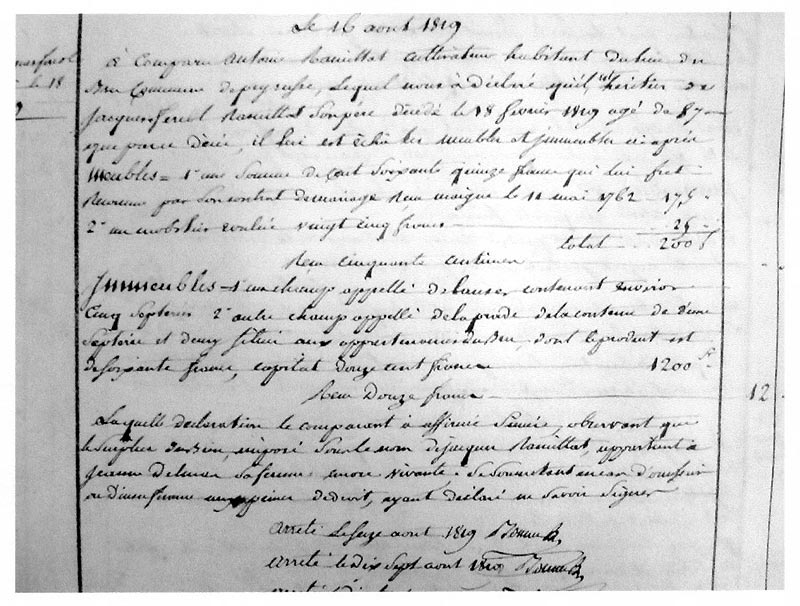 Le 16 aout 1819
à Comparu Antoine Ramillat cultivateur habitant du lieu du
Commune de peyrusse, Lequel nous à déclaré qu'il est héritier de
Jacques feriol Ramillat Son père décédé le 18 fevrier 1819 agé de 87
que par ce décès, il lui est échu les meubles et Jmmeubles ci après
Meubles = 1° une Somme de Cent Soixante quinze francs qui lui fut
Reconnue par Son contrat de mariage Reçu maigne le 14 mai 1762 175
2° un mobilier évalué vingt cinq francs 25
total 200 f
Reçu cinquante centimes
Jmmeubles = 1° un champ appellé de contenant Environ
Cinq Septerées 2° autre champ appellé de la prade de la contenue de d'une
Septerée et demy Situé aux appartenances du dont le produit est
de Soixante francs, capital douze cent francs 1200 f
Reçu Douze francs 12
Laquelle déclaration le comparant à affirmé Sincère, observant que
le Surplus du Bien, imposé Sous le nom de jacques Ramillat, appartient à
jeanne Delmas Sa femme encore vivante. Se Soumettant en cas d'omission
aux peines de droit, ayant déclaré ne Savoir Signer
arrêté Le Seize aout 1819
arrêté le dix Sept aout 1819